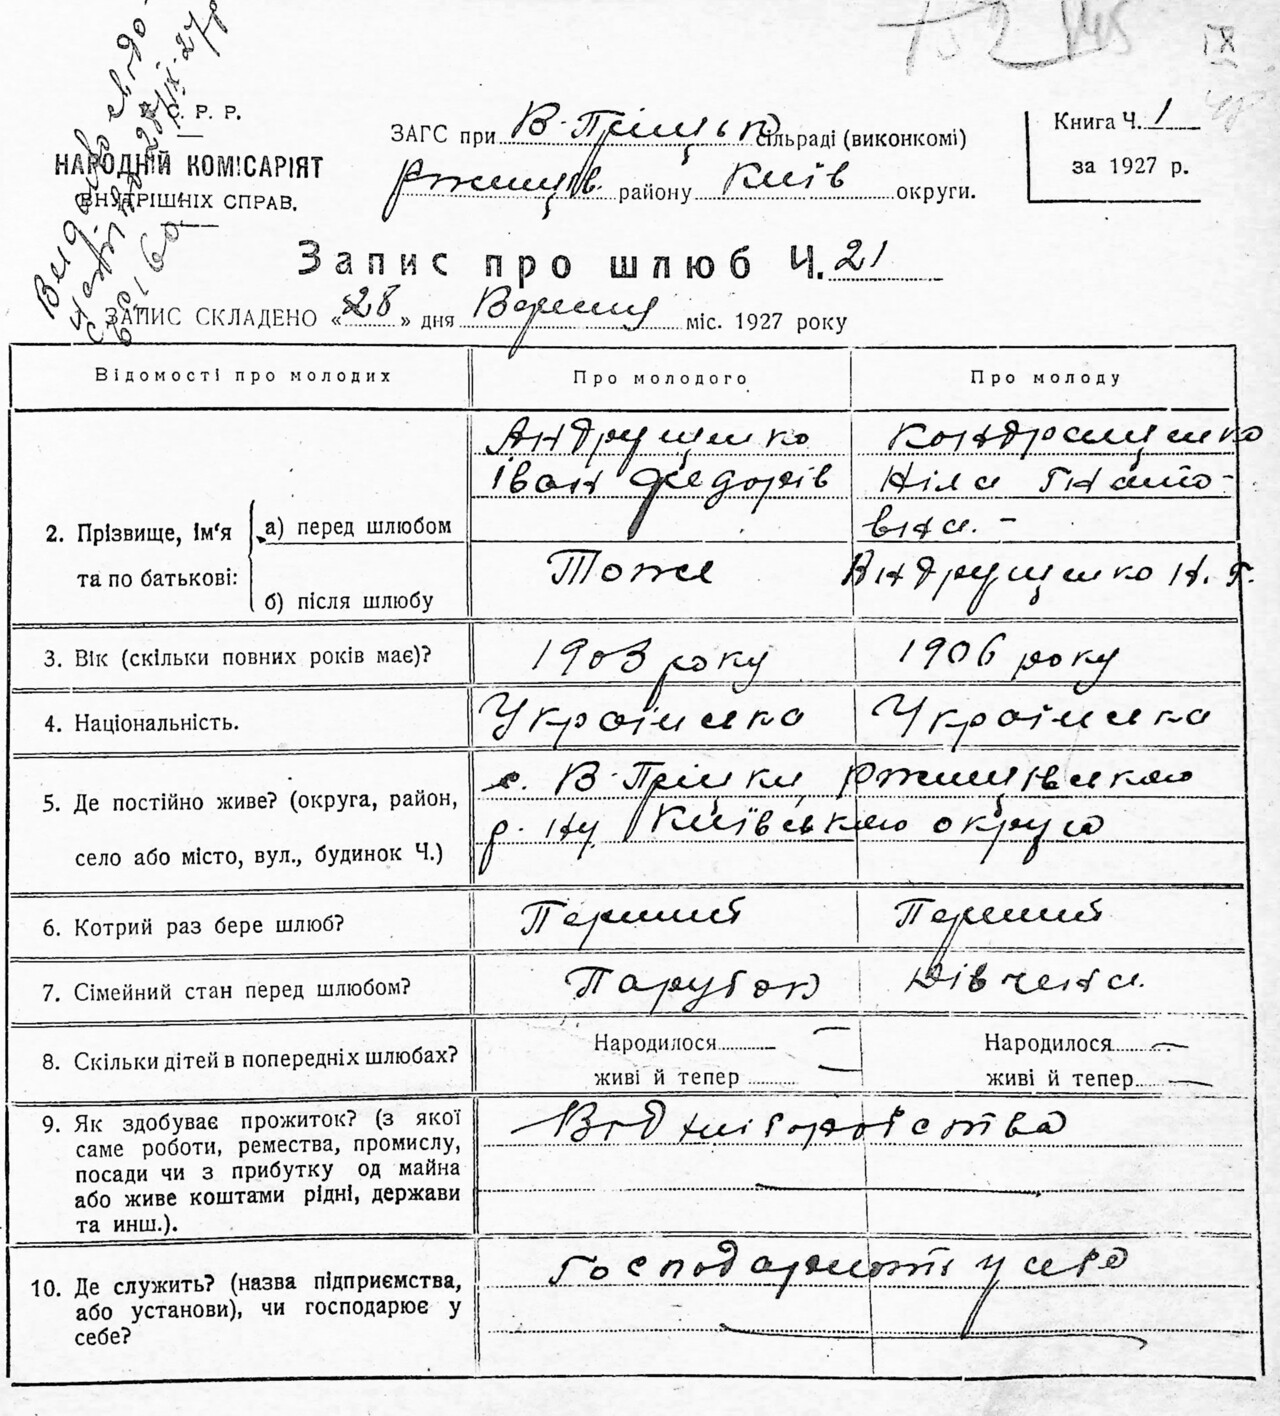 752 145
IX
48
Видано свідо-
С. Р. Р.
НАРОДНІЙ КОМІСАРІЯТ
ВНУТРІШНІХ СПРАВ.
ЗАГС при В-Пріцьк сільраді (виконкомі)
Ржищів. району Київ округи.
Книга Ч. 1
за 1927 р.
Запис про шлюб Ч. 21
ЗАПИС СКЛАДЕНО «28» дня Вересня міс. 1927 року
Відомості про молодих Про молодого Про молоду
2. Прізвище, ім'я та по батькові:
а) перед шлюбом
Андрущенко
Іван Федорів
Кондращенко
Ніла Гнато-
вна. -
б) після шлюбу
Тоже
Андрущенко Н. Г.
3. Вік (скільки повних років має)? 1903 року 1906 року
4. Національність. Українська Українська
5. Де постійно живе? (округа, район,
село або місто, вул., будинок Ч.)
с. В-Пріцки, Ржищівського
р-ну Київської округи
6. Котрий раз бере шлюб? Перший Перший
7. Сімейний стан перед шлюбом? Парубок Дівчина.
8. Скільки дітей в попередніх шлюбах?
Народилося — Народилося —
живі й тепер — живі й тепер —
9. Як здобуває прожиток? (з якої
саме роботи, ремества, промислу,
посади чи з прибутку од майна
або живе коштами рідні, держави
та инш.).
Від хліборобства
10. Де служить? (назва підприємства,
або установи), чи господарює у
себе?
Господарюють у себе